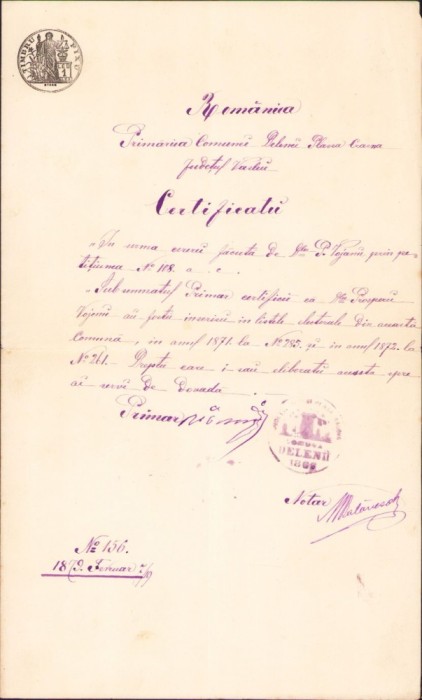 TIMBRU FIXO
România
Primăria Comunii Delenii Plasa Crasna
Judeţul Vasluiu
Certificatu
In urma cererei facuta de P. Vojanu prin pe-
tiţiunea No 108. a. c.
Sub-semnatul Primar certificu ca
au fostu inscrisu in listele electorale din acesta
Comună, in anul 1871. la No 283. şi in anul 1872. la
No 261. Drepta care i s'au eliberatu acesta spre
ai servi de dovadă.
Primar
DELENII
1866
Notar
No 156.
1879. Februar 7/9